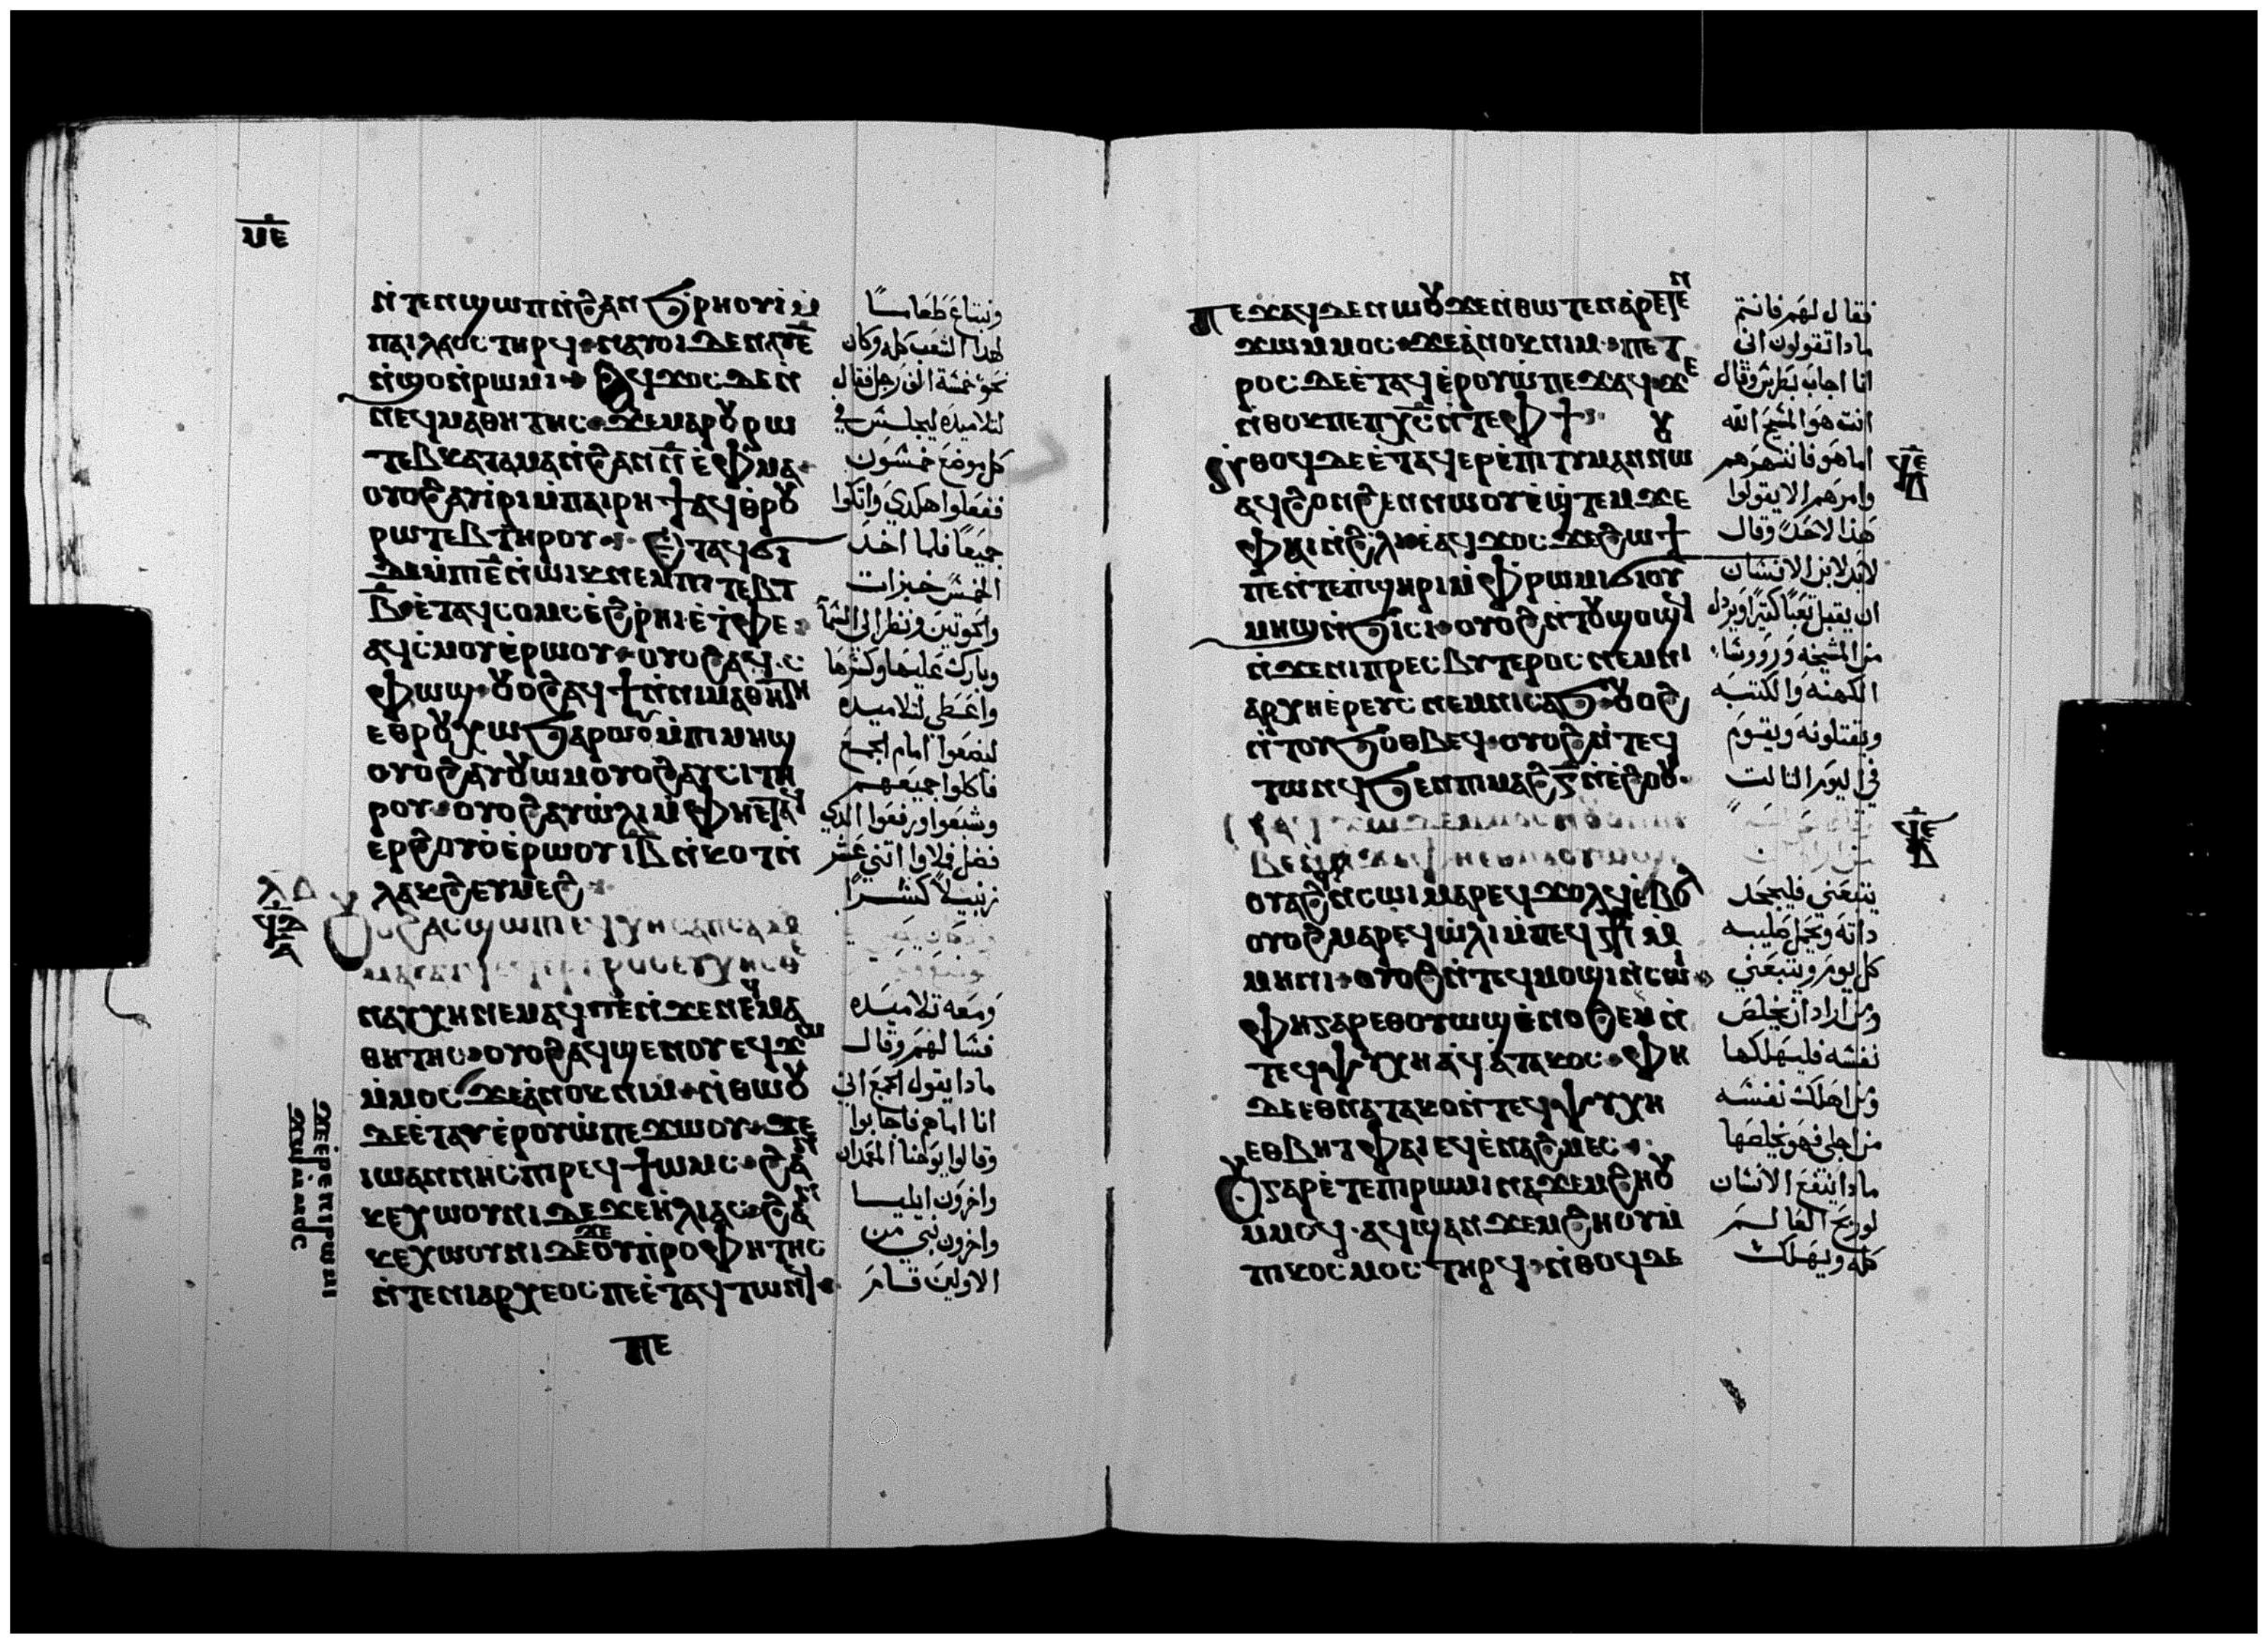 ⲛ̀ⲧⲉⲛϣⲱⲡ ⲛ̀ϩⲁⲛϧⲣⲏⲟⲩⲓ ⲙ̀
ⲡⲁⲓⲗⲁⲟⲥ ⲧⲏⲣϥ
ⲛ̀ϣⲟ ⲛ̀ⲣⲱⲙⲓ ⲁϥϫⲟⲥ ⲇⲉ ⲛ̀
ⲛⲉϥⲙⲁⲑⲏⲧⲏⲥ ϫⲉ ⲙⲁⲣⲟⲩⲣⲱ
ⲧⲉⲃ ⲕⲁⲧⲁ ⲙⲁ ⲛ̀ϩⲁⲛ ⲛ̅ ⲉ̀ⲫⲙⲁ
ⲟⲩⲟϩ ⲁⲩⲓⲣⲓ ⲙ̀ⲡⲁⲓⲣⲏϯ ⲁϥⲑⲣⲟⲩ
ⲣⲱⲧⲉⲃ ⲧⲏⲣⲟⲩ ⲉ̀ⲧⲁϥϭⲓ
ⲇⲉ ⲙ̀ⲡⲓⲉ̅ ⲛ̀ⲱⲓⲕ ⲛⲉⲙ ⲡⲓⲧⲉⲃⲧ
ⲃ̅ ⲉ̀ⲧⲁϥⲥⲟⲙⲥ ⲉ̀ϩⲣⲏⲓ ⲉ̀ⲧⲫⲉ
ⲁϥⲥⲙⲟⲩ ⲉ̀ⲣⲱⲟⲩ ⲟⲩⲟϩ ⲁϥ
ⲫⲱϣ ⲟⲩⲟϩ ⲁϥϯ ⲛ̀ⲛⲓⲙⲁⲑⲏⲧⲏⲥ
ⲉⲑⲣⲟⲩⲭⲱ ϧⲁⲣⲱⲟⲩ ⲙ̀ⲡⲓⲙⲏϣ
ⲟⲩⲟϩ ⲁⲩⲟⲩⲱⲙ ⲟⲩⲟϩ ⲁⲩⲥⲓ ⲧⲏ
ⲣⲟⲩ ⲟⲩⲟϩ ⲁⲩⲱ̀ⲗⲓ ⲙ̀ⲫⲏⲉⲧⲁϥ
ⲉⲣϩⲟⲩⲟ ⲉ̀ⲣⲱⲟⲩ ⲓⲃ ⲛ̀ⲕⲟⲧ ⲛ̀
ⲗⲁⲕϩ ⲉⲩⲙⲉϩ
ⲟⲩⲟϩ ⲁⲥϣⲱⲡⲓ ⲉϥⲭⲏ ⲥⲁⲡⲥⲁ
ⲛⲁⲩⲭⲏ ⲛⲉⲙⲁϥ ⲡⲉ ⲛ̀ϫⲉ ⲛⲉϥⲙⲁ
ⲑⲏⲧⲏⲥ ⲟⲩⲟϩ ⲁϥϣⲉⲛⲟⲩ ⲉϥϫⲱ
ⲙ̀ⲙⲟⲥ ϫⲉ ⲁ̀ⲛⲟⲕ ⲛⲓⲙ ⲛ̀ⲑⲱⲟⲩ
ⲇⲉ ⲉ̀ⲧⲁⲩⲉ̀ⲣⲟⲩⲱ̀ ⲡⲉϫⲱⲟⲩ ϫⲉ
ⲓⲱⲁⲛⲛⲏⲥ ⲡⲓⲣⲉϥϯⲱⲙⲥ ϩⲁⲛ
ⲕⲉⲭⲱⲟⲩⲛⲓ ⲇⲉ ϫⲉ ⲏ̀ⲗⲓⲁⲥ ϩⲁⲛ
ⲕⲉⲭⲱⲟⲩⲛⲓ ⲇⲉ ϫⲉ ⲟⲩⲡⲣⲟⲫⲏⲧⲏⲥ
ⲛ̀ⲧⲉ ⲛⲓⲁⲣⲭⲉⲟⲥ ⲡⲉ ⲉ̀ⲧⲁϥⲧⲱⲛϥ
ⲡⲉ
ونبتاع طعاما
لهذا الشعب كله وكان
نحو خمسة الف رجل فقال
لتلاميذه ليجلس في
كل موضع خمسون
ففعلوا هكدي واتكوا
جميعا فلما اخد
الخمس خبزات
والحوتين ونظر الى السما
وبارك عليها وكسرها
واعطي لتلاميده
ليضعوا امام الجمع
فاكلوا جميعهم
وشبعوا ورفعوا الذي
فضل فلاوا اتني عشر
زنبيلا كسرا
ومعه تلاميده
فسالهم وقال
مادا يقول الجمع اني
انا اما هم فاجابوا
وقالوا يوحنا المعمدان
واخرون ايليا
واخرون نبي من
الاولين قام
ⲡⲉϫⲁϥ ⲇⲉ ⲛⲱⲟⲩ ϫⲉ ⲛ̀ⲑⲱⲧⲉⲛ ⲁ̀ⲣⲉⲧⲉⲛ
ϫⲱ ⲙ̀ⲙⲟⲥ ϫⲉ ⲁ̀ⲛⲟⲕ ⲛⲓⲙ ⲡⲉⲧ
ⲣⲟⲥ ⲇⲉ ⲉ̀ⲧⲁϥⲉ̀ⲣⲟⲩⲱ̀ ⲡⲉϫⲁϥ ϫⲉ
ⲛ̀ⲑⲟⲕ ⲡⲉ ⲡⲭ̅ⲥ̅ ⲛ̀ⲧⲉ ⲫϯ
ⲛ̀ⲑⲟϥ ⲇⲉ ⲉ̀ⲧⲁϥⲉⲣⲉ̀ⲡⲓⲧⲓⲙⲁⲛ ⲛⲱⲟⲩ
ⲁϥϩⲟⲛϩⲉⲛ ⲛⲱⲟⲩ ⲉ̀ϣⲧⲉⲙϫⲉ
ⲫⲁⲓ ⲛ̀ϩⲗⲓ ⲉ̀ⲁϥϫⲟⲥ ϫⲉ ϩⲱϯ
ⲡⲉ ⲛ̀ⲧⲉ ⲡ̀ϣⲏⲣⲓ ⲙ̀ⲫⲣⲱⲙⲓ ϭⲓ ⲟⲩ
ⲙⲏϣ ⲛ̀ϧⲓⲥⲓ ⲟⲩⲟϩ ⲛ̀ⲧⲟⲩϣⲟϣϥ
ⲛ̀ϫⲉ ⲛⲓⲡⲣⲉⲥⲃⲩⲧⲉⲣⲟⲥ ⲛⲉⲙ ⲛⲓ
ⲁⲣⲭⲏⲉ̀ⲣⲉⲩⲥ ⲛⲉⲙ ⲛⲓⲥⲁϧ ⲟⲩⲟϩ
ⲛ̀ⲧⲟⲩϧⲟⲑⲃⲉϥ ⲟⲩⲟϩ ⲛ̀ⲧⲉϥ
ⲧⲱⲛϥ ϧⲉⲛ ⲡⲓⲙⲁϩ ⲅ̅ ⲛ̀ⲉ̀ϩⲟⲟⲩ
ⲟⲩⲁϩϥ ⲛ̀ⲥⲱⲓ ⲙⲁⲣⲉϥϫⲟⲗϥ ⲉ̀ⲃⲟⲗ
ⲟⲩⲟϩ ⲙⲁⲣⲉϥⲱ̀ⲗⲓ ⲙ̀ⲡⲉϥ
ⲙⲏⲛⲓ ⲟⲩⲟϩ ⲛ̀ⲧⲉϥⲙⲟϣⲓ ⲛ̀ⲥⲱⲓ
ⲫⲏ ⲅⲁⲣ ⲉⲑⲟⲩⲱϣ ⲉ̀ⲛⲟϩⲉⲙ ⲛ̀
ⲧⲉϥⲯⲩⲭⲏ ⲁϥⲁ̀ⲧⲁⲕⲟⲥ ⲫⲏ
ⲇⲉ ⲉⲑⲛⲁⲧⲁⲕⲟ ⲛ̀ⲧⲉϥⲯⲩⲭⲏ
ⲉⲑⲃⲏⲧ ⲫⲁⲓ ⲉϥⲉ̀ⲛⲁϩⲙⲉⲥ
ⲟⲩ ⲅⲁⲣ ⲉ̀ⲧⲉ ⲡⲓⲣⲱⲙⲓ ⲛⲁϫⲉⲙϩⲏⲟⲩ
ⲙ̀ⲙⲟϥ ⲁϥϣⲁⲛϫⲉⲙϩⲏⲟⲩ ⲙ̀
ⲡⲓⲕⲟⲥⲙⲟⲥ ⲧⲏⲣϥ ⲛ̀ⲑⲟϥ ⲇⲉ
فقال لهم فانتم
مادا تقولون اني
انا اجاب بطرس وقال
انت هو المسيح الله
اما هو فانتهرهم
وامرهم الا يقولوا
هذا لاحد وقال
لابد لابن الانسان
ان يقبل تعبا كتيرا ويردل
من المشيخه وروسا
الكهنه والكتبه
ويقتلونه ويقوم
في اليوم التالت
يتبعني فليجحد
داته ويحمل صليبه
كل يوم ويتبعني
ومن اراد ان يخلص
نفسه فليهلكها
ومن اهلك نفسه
من اجلي فهو يخلصها
مادا ينفع الانسان
لو ربح العالم
كله ويهلك